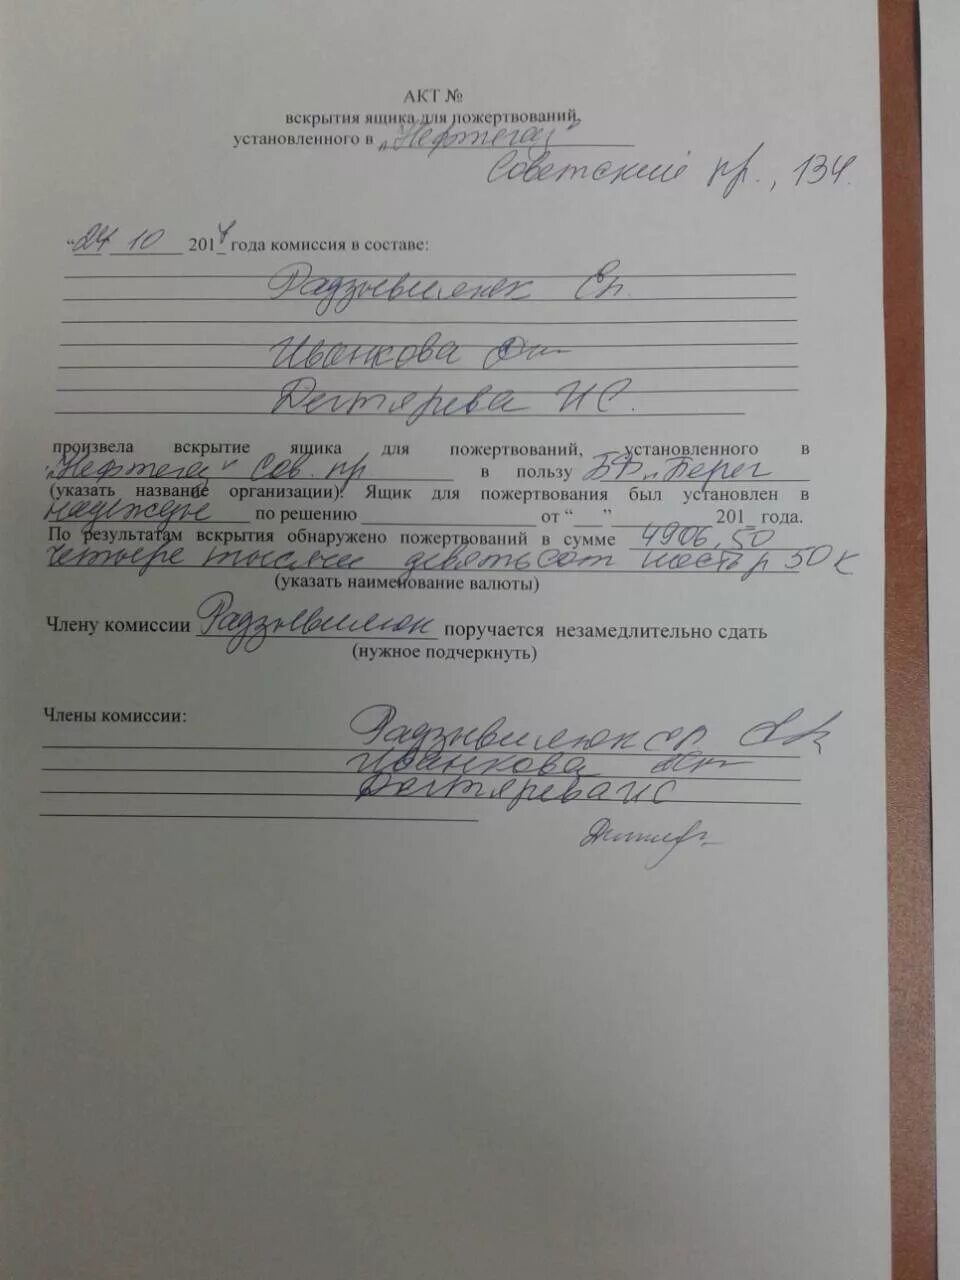 АКТ №
вскрытия ящика для пожертвований,
установленного в „Нефтегаз"
Советский пр., 134.
"24 10 2017 года комиссия в составе:
Радзывилюк
Иванкова
Дегтярева И.С.
произвела вскрытие ящика для пожертвований, установленного в
„Нефтегаз" Сов. пр. в пользу БФ „Берег
(указать название организации). Ящик для пожертвования был установлен в
надежды по решению ____ от "__"____ 201_ года.
По результатам вскрытия обнаружено пожертвований в сумме 4906,50
четыре тысячи девятьсот шесть р 50 к
(указать наименование валюты)
Члену комиссии Радзывилюк поручается незамедлительно сдать
(нужное подчеркнуть)
Члены комиссии:
Радзывилюк
Иванкова
Дегтярева ИС